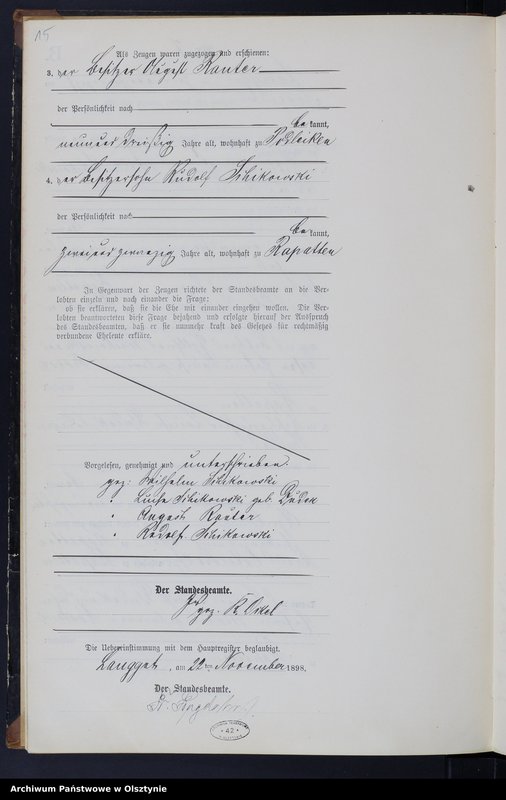 15
Als Zeugen waren zugezogen und erschienen:
3. der Besitzer August Rauter
der Persönlichkeit nach
be kannt,
neununddreißig Jahre alt, wohnhaft zu Podleiken
4. der Besitzersohn Rudolf Schikowski
der Persönlichkeit nach
be kannt,
zweiundzwanzig Jahre alt, wohnhaft zu Rapatten
In Gegenwart der Zeugen richtete der Standesbeamte an die Ver-
lobten einzeln und nach einander die Frage:
ob sie erklären, daß sie die Ehe mit einander eingehen wollen. Die Ver-
lobten beantworteten diese Frage bejahend und erfolgte hierauf der Ausspruch
des Standesbeamten, daß er sie nunmehr kraft des Gesetzes für rechtmäßig
verbundene Eheleute erkläre.
Vorgelesen, genehmigt und unterschrieben:
gez: Wilhelm Schikowski
" Luise Schikowski geb.
" August Rauter
" Rudolf Schikowski
Der Standesbeamte.
gez. K.
Die Uebereinstimmung mit dem Hauptregister beglaubigt.
Langgut, am 22ten November 1898.
Der Standesbeamte.
42
Archiwum Państwowe w Olsztynie